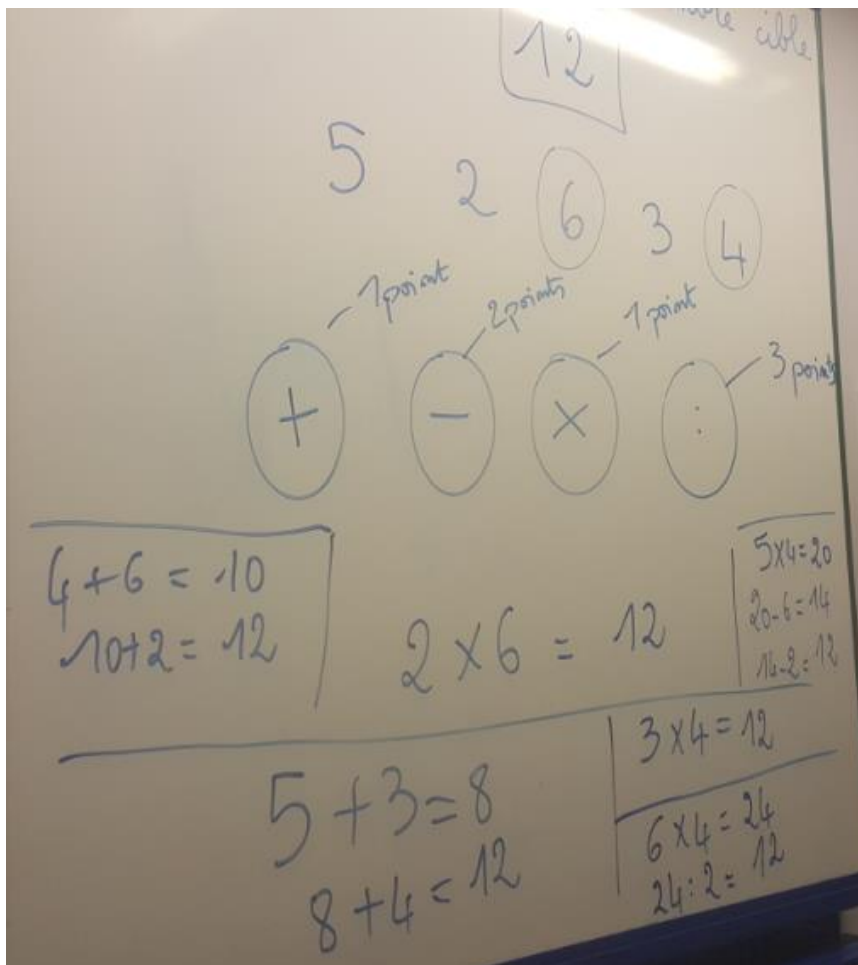 cible
12
5 2 6 3 4
1 point 2 points 1 point 3 points
+ - × :
4+6 = 10
10+2 = 12
2 × 6 = 12
5×4=20
20-6=14
14-2=12
5+3=8
8+4=12
3×4=12
6×4=24
24:2=12